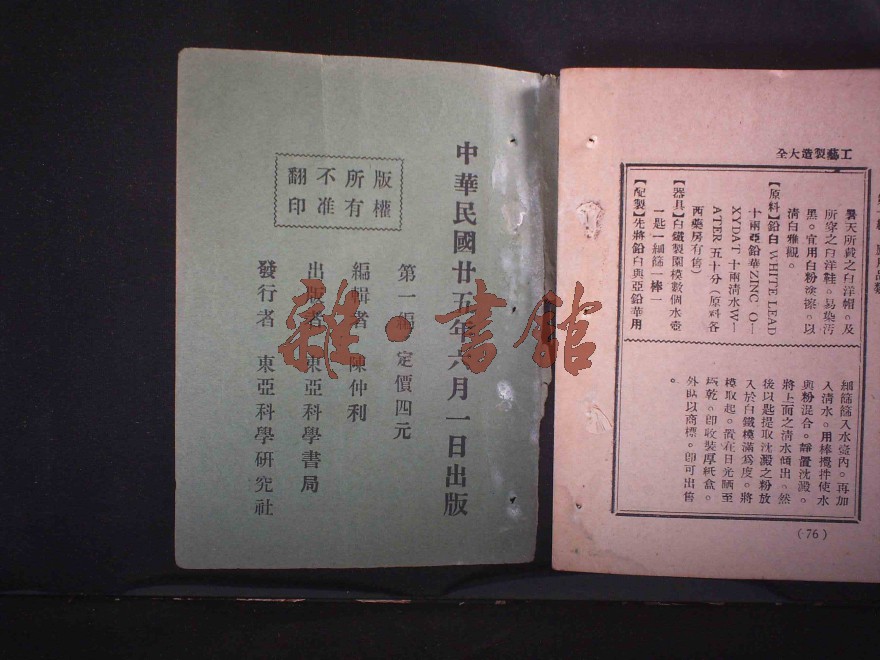 工藝製造大全
暑天所戴之白洋帽。及
所穿之白洋鞋。易染汚
黑。宜用白粉塗擦。以
清白雅觀。
【原料】鉛白 WHITE LEAD
十兩亞鉛華 ZINC O—
XYDAT 十兩清水 W—
ATER 五十分（原料各
西藥房有售）
【器具】白鐵製園模數個水壺
一匙一細篩一棒一
【配製】先將鉛白與亞鉛華用
細篩篩入水壺內。再加
入清水。用棒攪拌使水
與粉混合。靜置沈澱。
將上面之清水傾出。然
後以匙提取沈澱之粉放
入於白鐵模滿爲度。將
模取起。置在日光晒至
極乾。卽收裝厚紙盒。
外貼以商標。卽可出售
。
(76)
中華民國廿五年六月一日出版
版權
所有
不准
翻印
第一編 定價四元
編輯者 陳仲利
出版者 東亞科學書局
發行者 東亞科學研究社
雜·書館